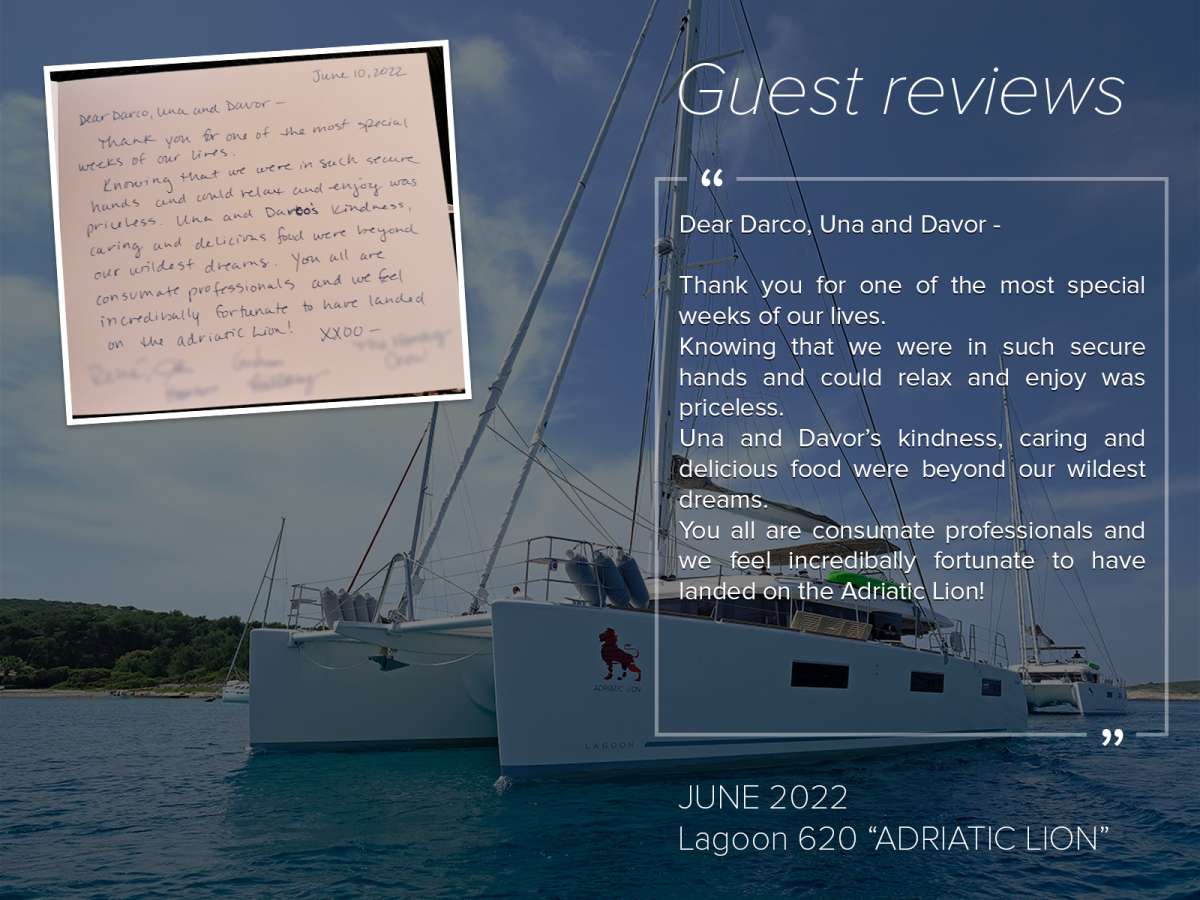 June 10, 2022
Dear Darco, Una and Davor -
Thank you for one of the most special
weeks of our lives.
Knowing that we were in such secure
hands and could relax and enjoy was
priceless. Una and Darco's kindness,
caring and delicious food were beyond
our wildest dreams. You all are
consumate professionals and we feel
incredibally fortunate to have landed
on the adriatic Lion! XXOO -
Guest reviews
“
Dear Darco, Una and Davor -
Thank you for one of the most special
weeks of our lives.
Knowing that we were in such secure
hands and could relax and enjoy was
priceless.
Una and Davor’s kindness, caring and
delicious food were beyond our wildest
dreams.
You all are consumate professionals and
we feel incredibally fortunate to have
landed on the Adriatic Lion!
”
ADRIATIC LION
LAGOON
JUNE 2022
Lagoon 620 “ADRIATIC LION”